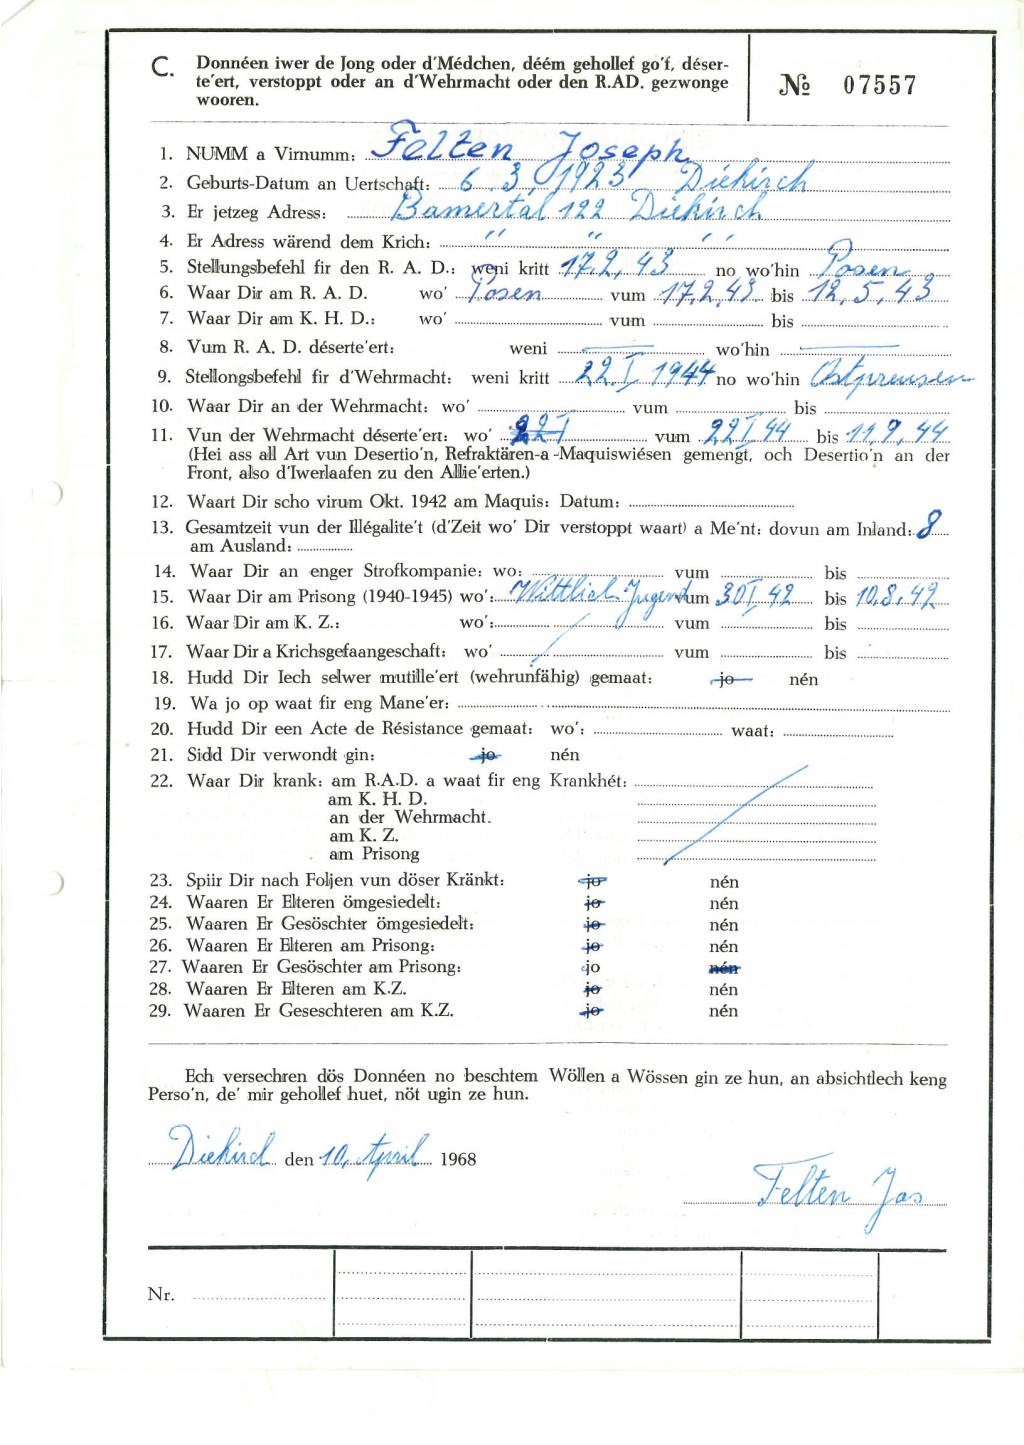 C. Donnéen iwer de Jong oder d'Médchen, déém gehollef go'f, déser-
te'ert, verstoppt oder an d'Wehrmacht oder den R.AD. gezwonge
wooren.
№ 07557
1. NUMM a Virnumm: Felten Joseph
2. Geburts-Datum an Uertschaft: 6.3.1923 Diekirch
3. Er jetzeg Adress: Bamertal 122 Diekirch
4. Er Adress wärend dem Krich: " " "
5. Stellungsbefehl fir den R. A. D.: weni kritt 17.2.43 no wo'hin Posen
6. Waar Dir am R. A. D. wo' Posen vum 17.2.43 bis 12.5.43
7. Waar Dir am K. H. D.: wo' vum bis
8. Vum R. A. D. déserte'ert: weni wo'hin
9. Stellongsbefehl fir d'Wehrmacht: weni kritt 22.I 1944 no wo'hin Ostpreusen
10. Waar Dir an der Wehrmacht: wo' vum bis
11. Vun der Wehrmacht déserte'ert: wo' 22 I vum 22 I 44 bis 11.9.44
(Hei ass all Art vun Desertio'n, Refraktären-a-Maquiswiésen gemengt, och Desertio'n an der
Front, also d'Iwerlaafen zu den Allie'erten.)
12. Waart Dir scho virum Okt. 1942 am Maquis: Datum:
13. Gesamtzeit vun der Illégalite't (d'Zeit wo' Dir verstoppt waart) a Me'nt: dovun am Inland: 8
am Ausland:
14. Waar Dir an enger Strofkompanie: wo: vum bis
15. Waar Dir am Prisong (1940-1945) wo': Wittlich Jugend vum 30 I 42 bis 10.8.42
16. Waar Dir am K. Z.: wo': vum bis
17. Waar Dir a Krichsgefaangeschaft: wo' vum bis
18. Hudd Dir Iech selwer mutille'ert (wehrunfähig) gemaat: jo nén
19. Wa jo op waat fir eng Mane'er:
20. Hudd Dir een Acte de Résistance gemaat: wo': waat:
21. Sidd Dir verwondt gin: jo nén
22. Waar Dir krank: am R.A.D. a waat fir eng Krankhét:
am K. H. D.
an der Wehrmacht.
am K. Z.
am Prisong
23. Spiir Dir nach Foljen vun döser Kränkt: jo nén
24. Waaren Er Elteren ömgesiedelt: jo nén
25. Waaren Er Gesöschter ömgesiedelt: jo nén
26. Waaren Er Elteren am Prisong: jo nén
27. Waaren Er Gesöschter am Prisong: jo nén
28. Waaren Er Elteren am K.Z. jo nén
29. Waaren Er Geseschteren am K.Z. jo nén
Ech versechren dös Donnéen no beschtem Wöllen a Wössen gin ze hun, an absichtlech keng
Perso'n, de' mir gehollef huet, nöt ugin ze hun.
Diekirch den 10. April 1968
Felten Jos
Nr.